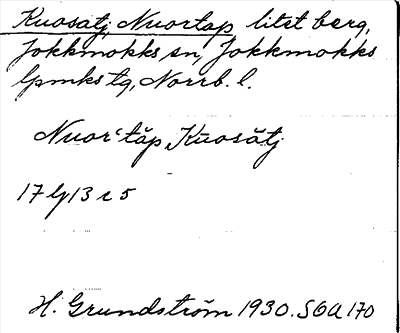 Kuosatj, Nuortap litet berg,
Jokkmokks sn, Jokkmokks
lpmks tg, Norrb. l.
Nuorʻtåp, Kŭosătj
17 lg 13 r 5
H. Grundström 1930. SOA 170